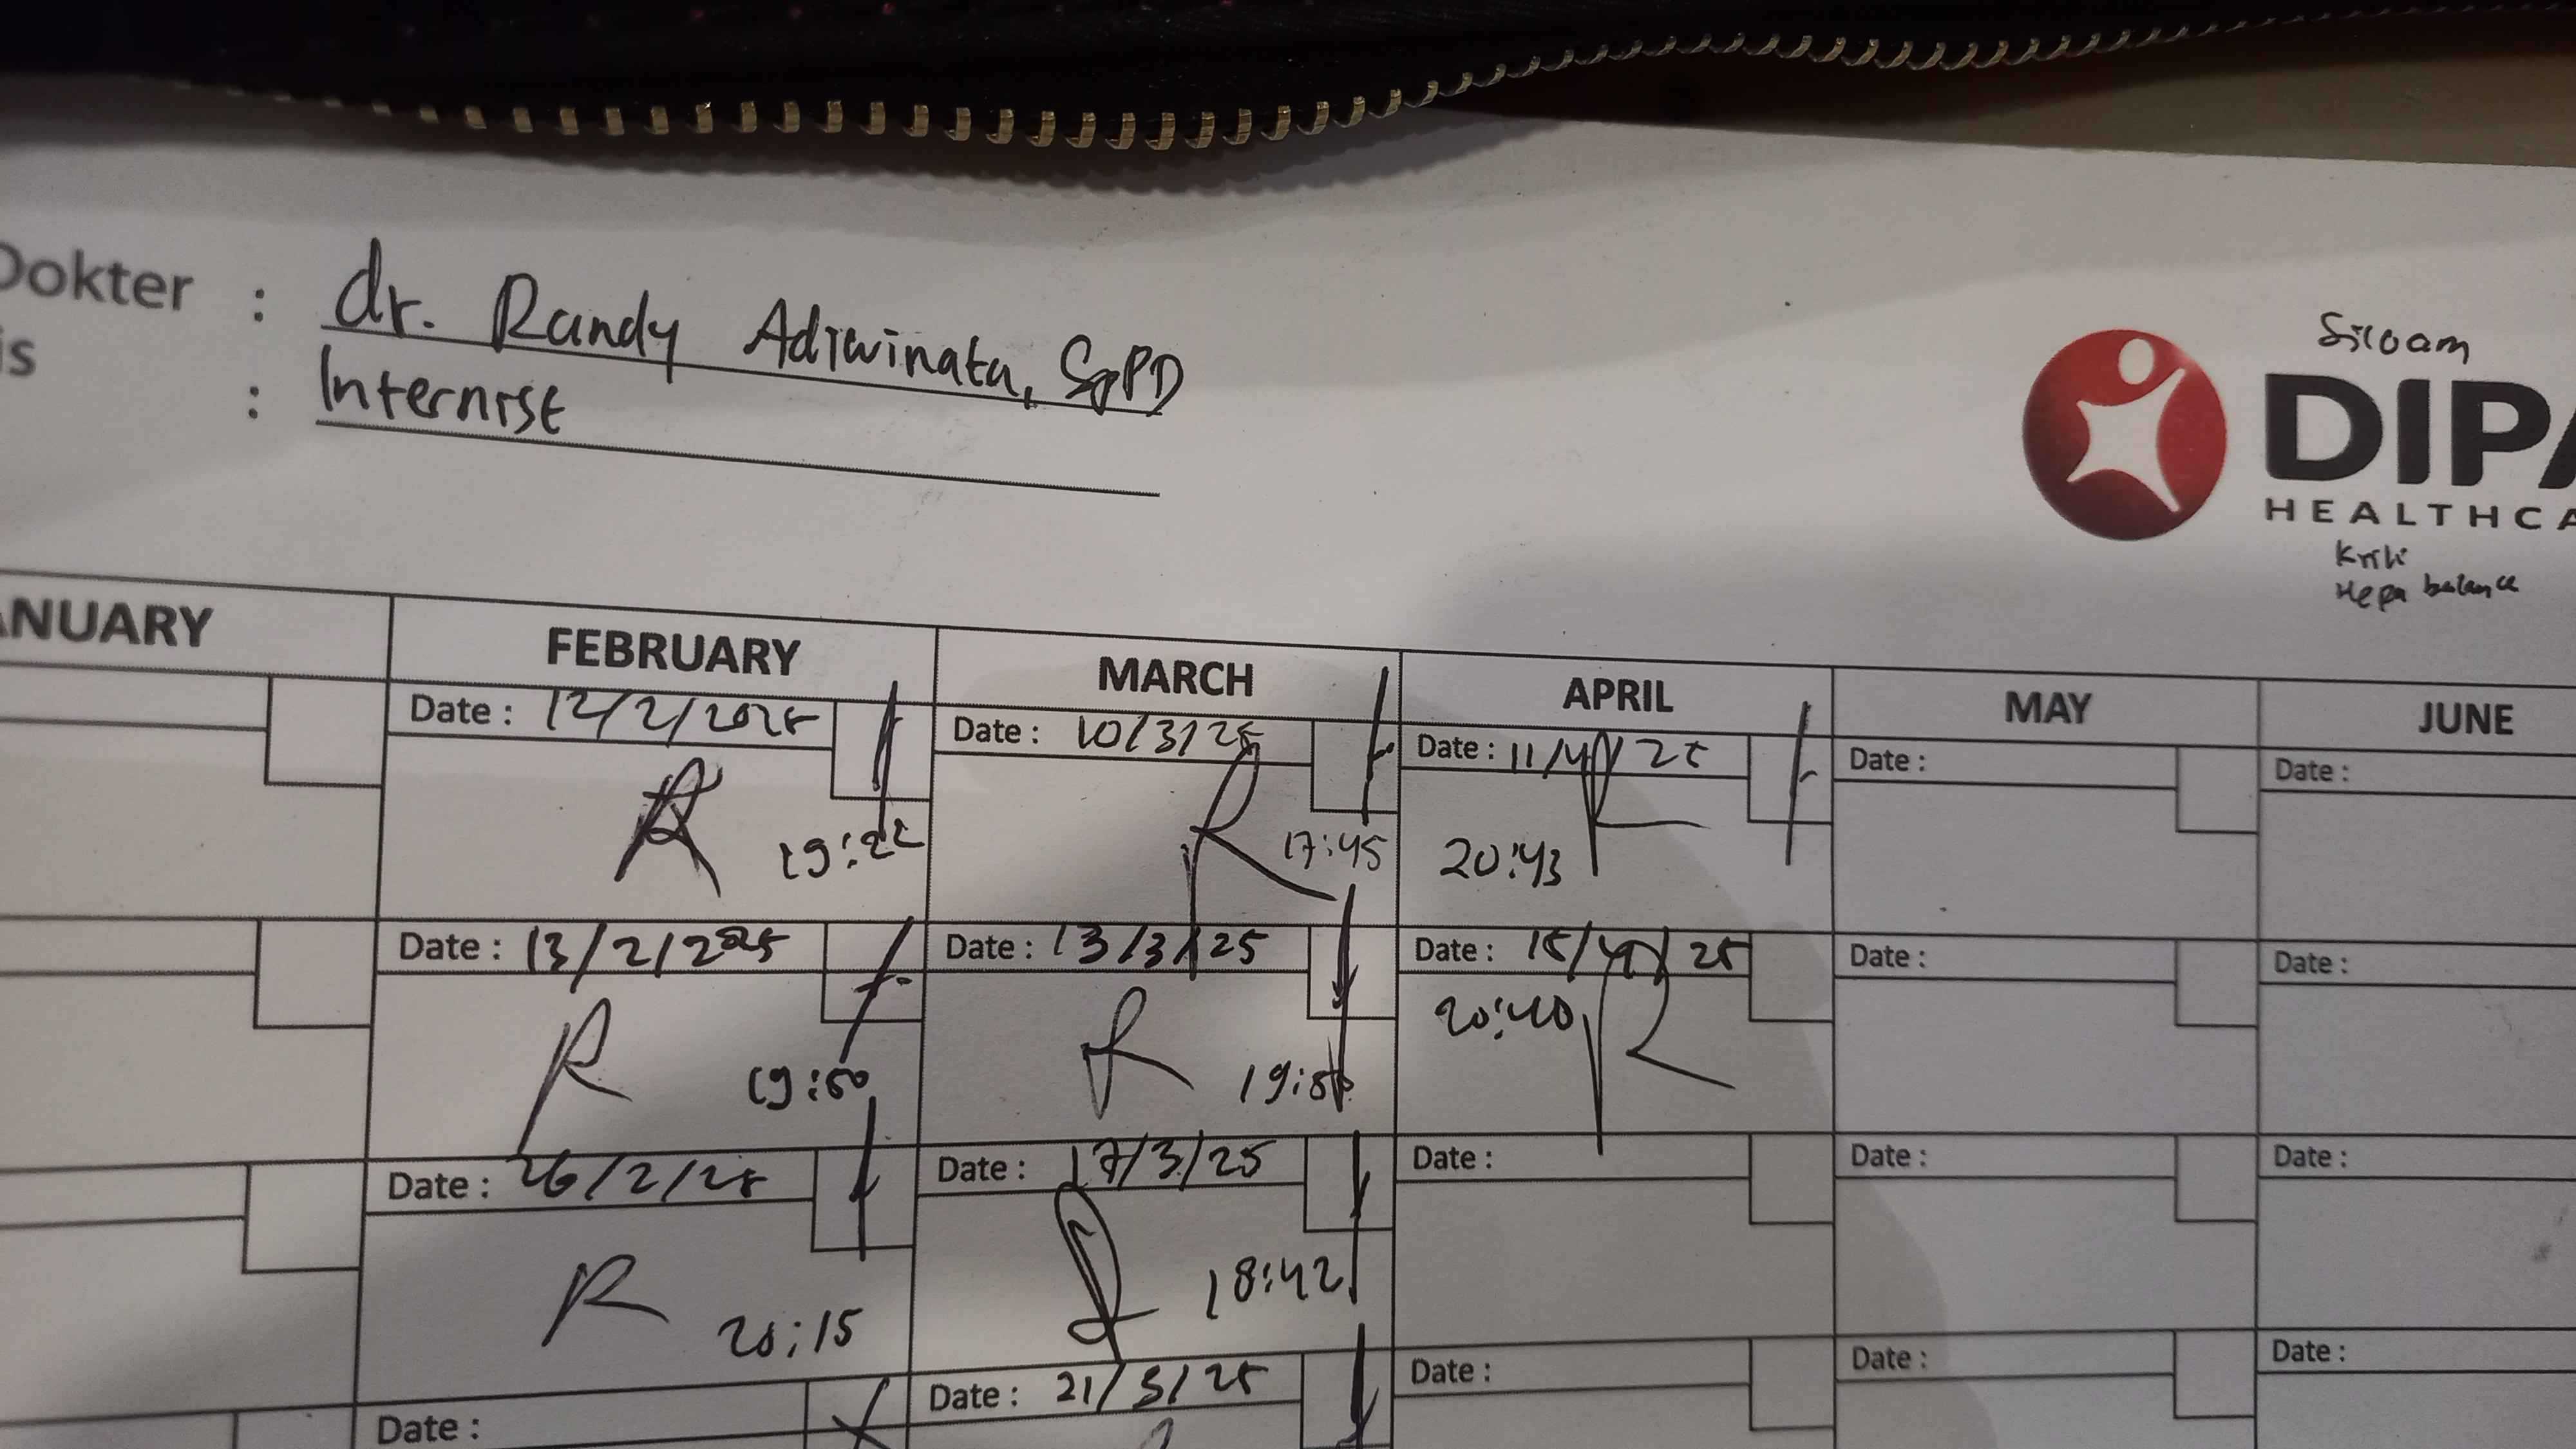 Dokter : dr. Randy Adiwinata, SpPD
is : Internist
Siloam
DIPA
HEALTHCA
Hepa balance
ANUARY FEBRUARY MARCH APRIL MAY JUNE
Date : 12/2/2025 Date : 10/3/25 Date : 11/4/25 Date : Date :
19:22 17:45 20:43
Date : 13/2/2025 Date : 13/3/25 Date : 15/4/25 Date : Date :
19:50 20:40
Date : 26/2/25 Date : 17/3/25 Date : Date : Date :
20:15 18:42
Date : Date : 21/3/25 Date : Date : Date :